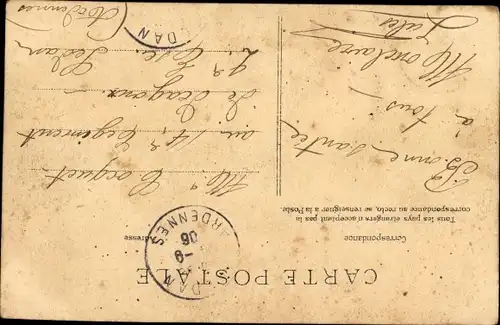 CARTE POSTALE
Correspondance
Adresse
Tous les pays étrangers n'acceptent pas la
correspondance au recto, se renseigner à la Poste.
Bonne santé
à tous
Jules
Mr Coquet
au 14e Régiment
de Dragons
Sedan
(Ardennes)
DAN
ARDENNES
9-
06
DAN